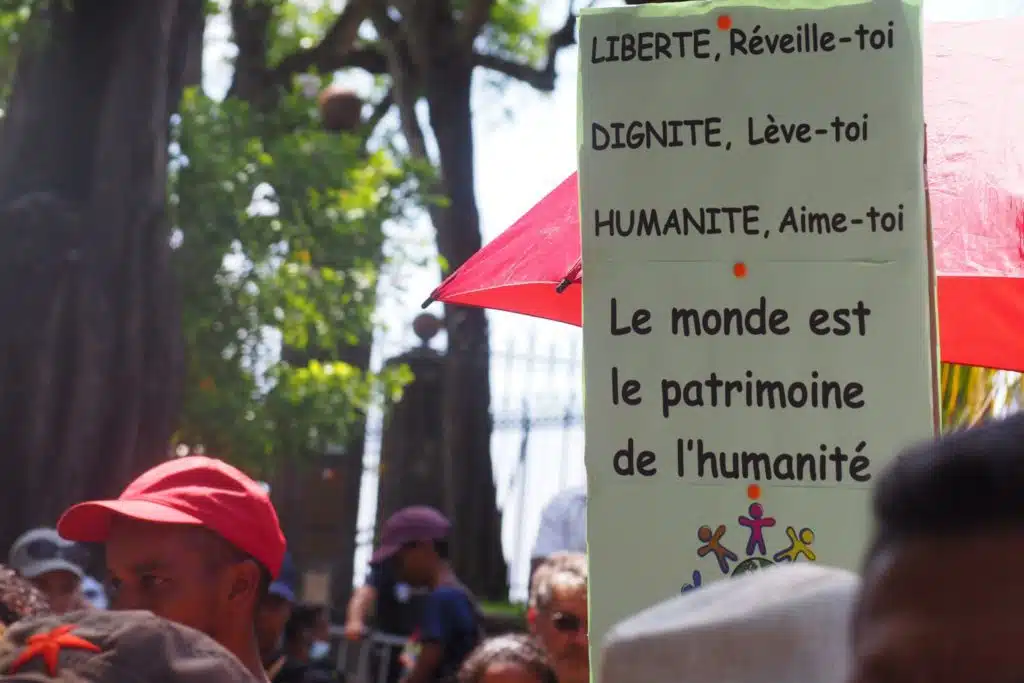 LIBERTE, Réveille-toi
DIGNITE, Lève-toi
HUMANITE, Aime-toi
Le monde est
le patrimoine
de l'humanité